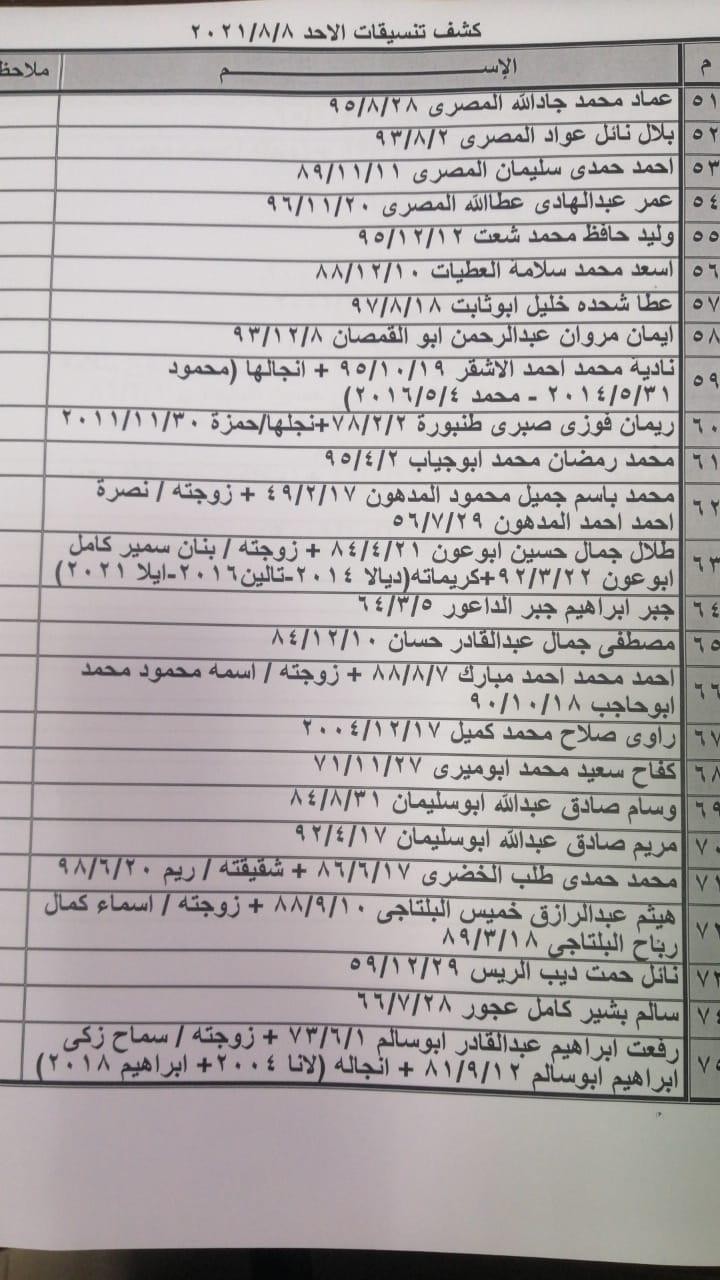 كشف تنسيقات الاحد ٢٠٢١/٨/٨
م الإســـــــــم ملاحظ
٥١ عماد محمد جادالله المصرى ٩٥/٨/٢٨
٥٢ بلال نائل عواد المصرى ٩٣/٨/٢
٥٣ احمد حمدى سليمان المصرى ٨٩/١١/١١
٥٤ عمر عبدالهادى عطاالله المصرى ٩٦/١١/٢٠
٥٥ وليد حافظ محمد شعت ٩٥/١٢/١٢
٥٦ اسعد محمد سلامة العطيات ٨٨/١٢/١٠
٥٧ عطا شحده خليل ابوثابت ٩٧/٨/١٨
٥٨ ايمان مروان عبدالرحمن ابو القمصان ٩٣/١٢/٨
٥٩ نادية محمد احمد الاشقر ٩٥/١٠/١٩ + انجالها (محمود
٢٠١٤/٥/٣١ - محمد ٢٠١٦/٥/٤)
٦٠ ريمان فوزى صبرى طنبورة ٧٨/٢/٢+نجلها/حمزة ٢٠١١/١١/٣٠
٦١ محمد رمضان محمد ابوجياب ٩٥/٤/٢
٦٢ محمد باسم جميل محمود المدهون ٤٩/٢/١٧ + زوجته / نصرة
احمد احمد المدهون ٥٦/٧/٢٩
٦٣ طلال جمال حسين ابوعون ٨٤/٤/٢١ + زوجته / بنان سمير كامل
ابوعون ٩٢/٣/٢٢+كريماته(ديالا ٢٠١٤-تالين٢٠١٦-ايلا ٢٠٢١)
٦٤ جبر ابراهيم جبر الداعور ٦٤/٣/٥
٦٥ مصطفى جمال عبدالقادر حسان ٨٤/١٢/١٠
٦٦ احمد محمد احمد مبارك ٨٨/٨/٧ + زوجته / اسمه محمود محمد
ابوحاجب ٩٠/١٠/١٨
٦٧ راوى صلاح محمد كميل ٢٠٠٤/١٢/١٧
٦٨ كفاح سعيد محمد ابوميرى ٧١/١١/٢٧
٦٩ وسام صادق عبدالله ابوسليمان ٨٤/٨/٣١
٧٠ مريم صادق عبدالله ابوسليمان ٩٢/٤/١٧
٧١ محمد حمدى طلب الخضرى ٨٦/٦/١٧ + شقيقته / ريم ٩٨/٦/٢٠
٧٢ هيثم عبدالرازق خميس البلتاجى ٨٨/٩/١٠ + زوجته / اسماء كمال
رباح البلتاجى ٨٩/٣/١٨
٧٣ نائل حمت ديب الريس ٥٩/١٢/٢٩
٧٤ سالم بشير كامل عجور ٦٦/٧/٢٨
٧٥ رفعت ابراهيم عبدالقادر ابوسالم ٧٣/٦/١ + زوجته / سماح زكى
ابراهيم ابوسالم ٨١/٩/١٢ + انجاله (لانا ٢٠٠٤+ ابراهيم ٢٠١٨)